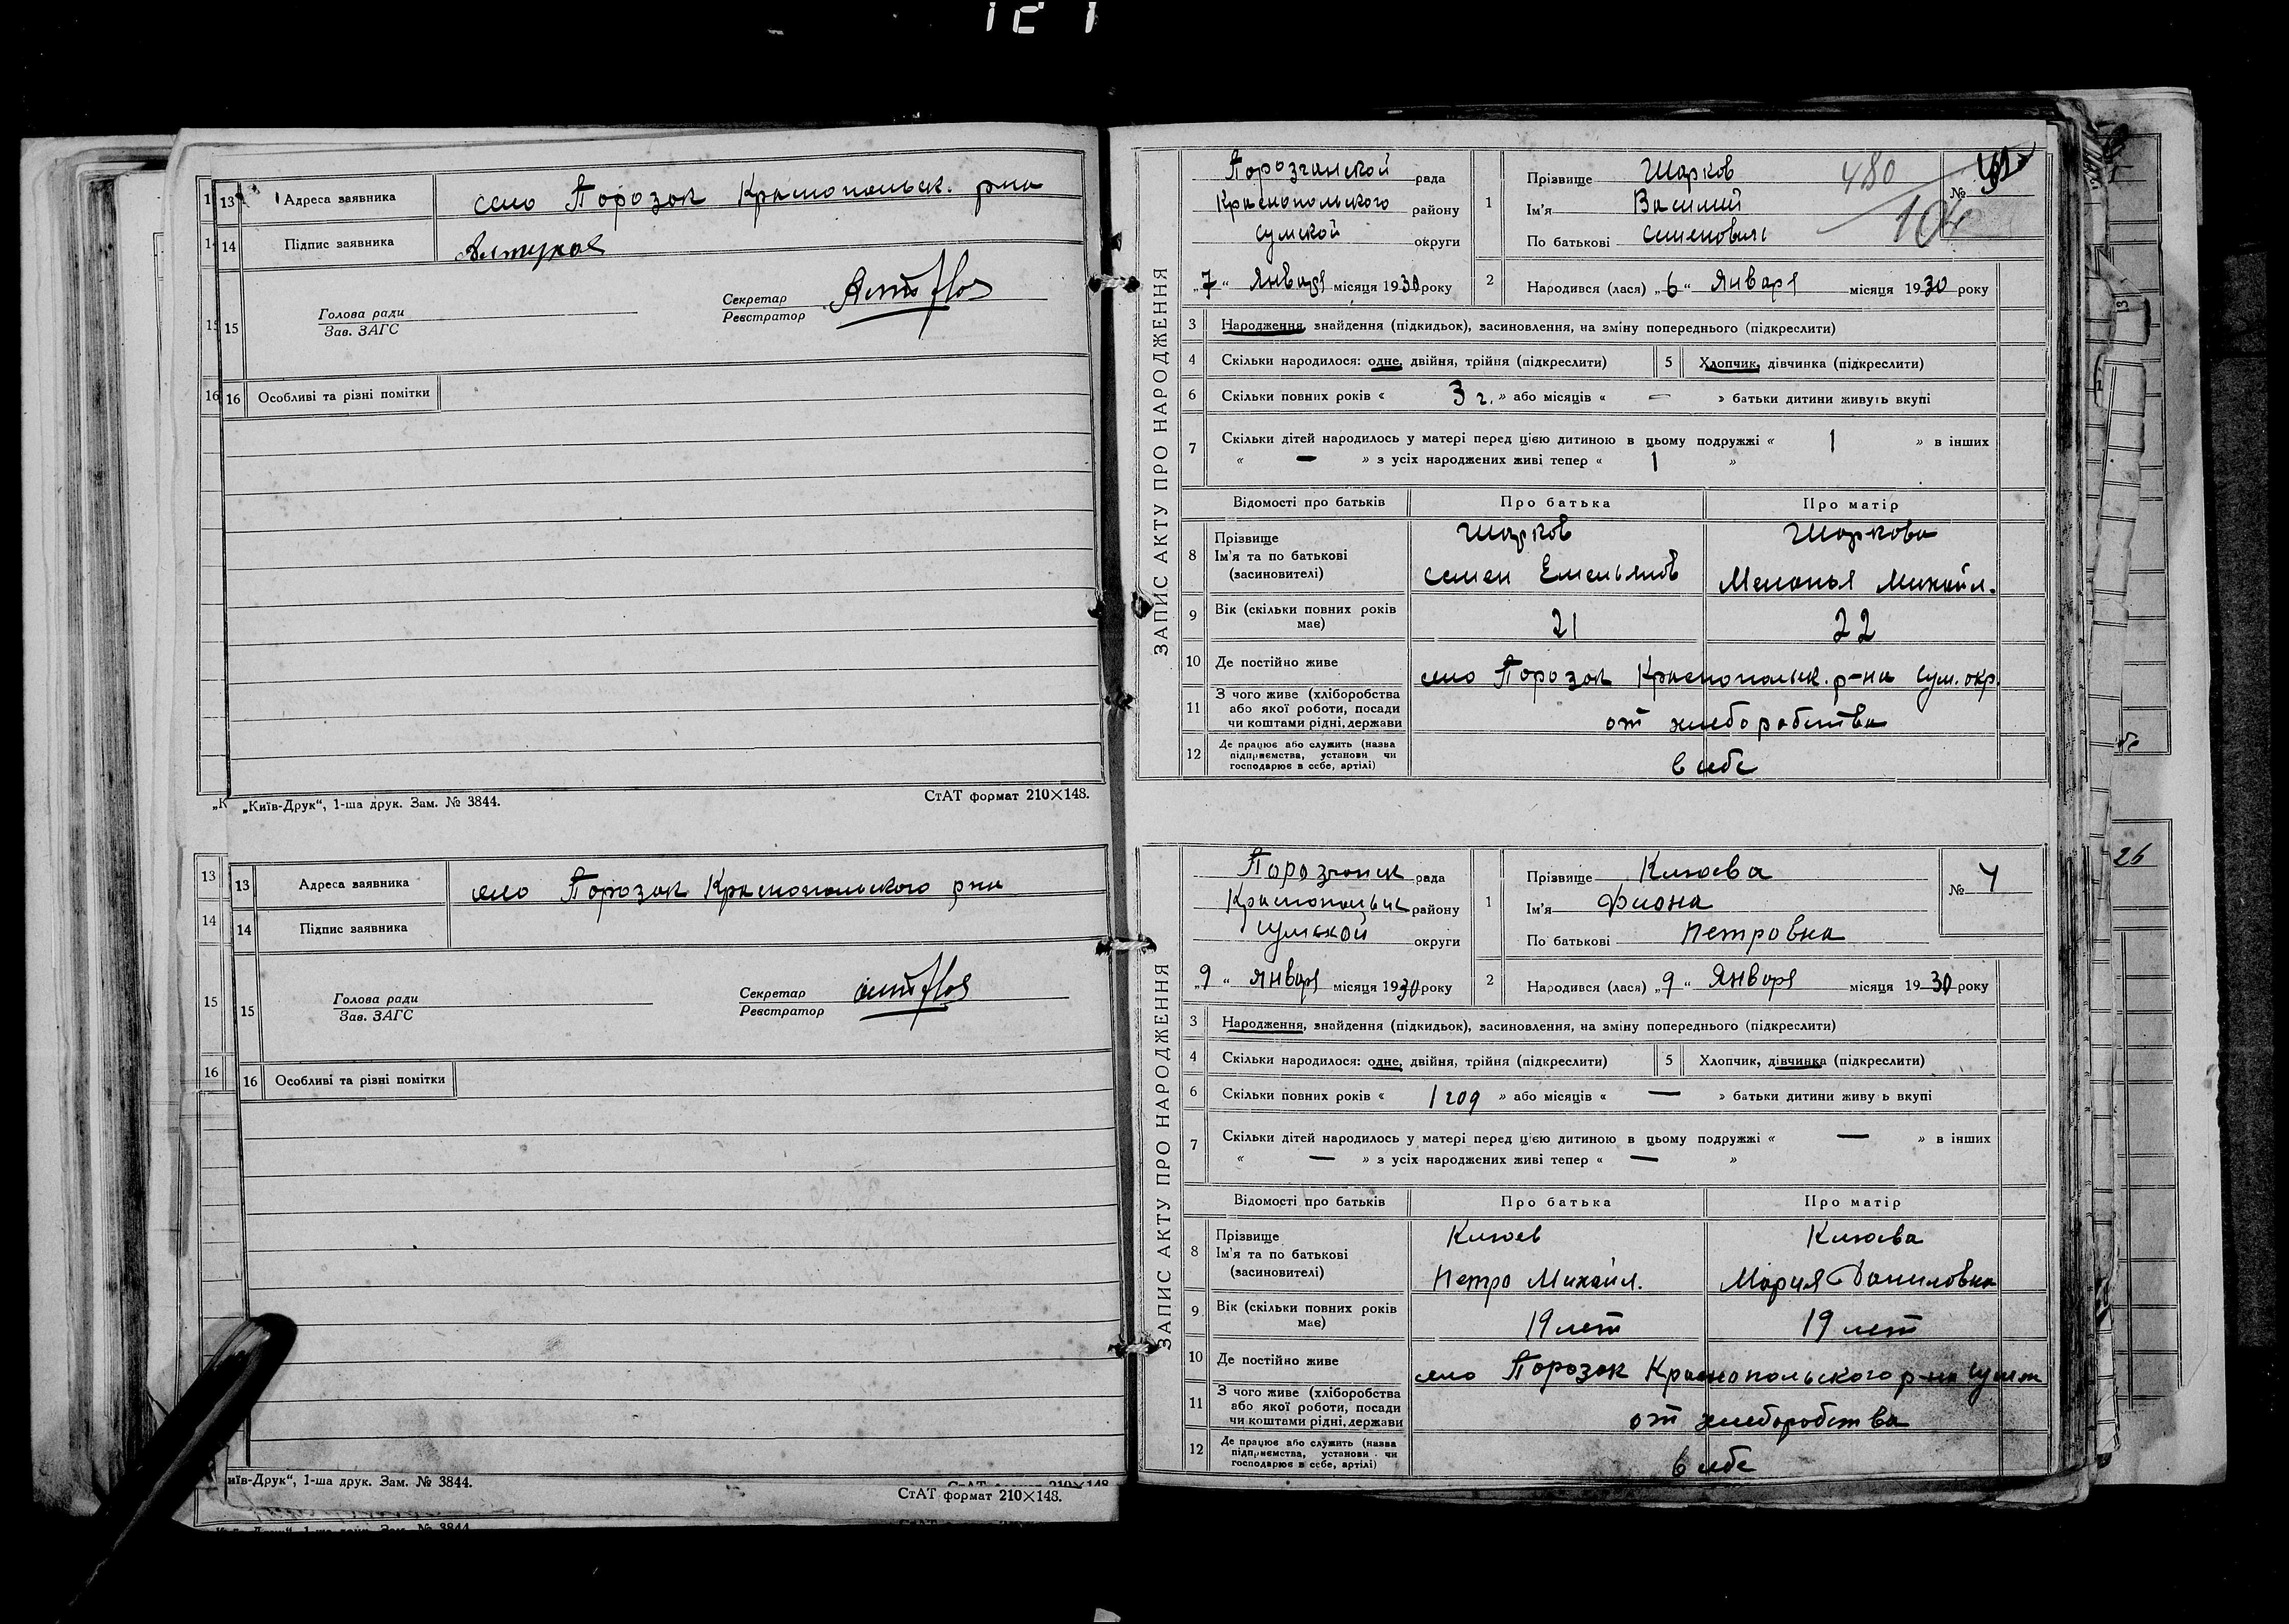 121
13 Адреса заявника село Порозок Краснопольск. рна
14 Підпис заявника
15 Голова ради
Зав. ЗАГС
Секретар
Реєстратор
16 Особливі та різні помітки
„Київ-Друк“, 1-ша друк. Зам. № 3844.
СтАТ формат 210×148.
13 Адреса заявника село Порозок Краснопольского рна
14 Підпис заявника
15 Голова ради
Зав. ЗАГС
Секретар
Реєстратор
16 Особливі та різні помітки
иїв-Друк“, 1-ша друк. Зам. № 3844.
СтАТ формат 210×148.
ЗАПИС АКТУ ПРО НАРОДЖЕННЯ
Порозчанской рада
Краснопольского району
Сумской округи
„7“ Января місяця 1930 року
1 Прізвище Шарков
480
№
Ім'я Василий
104
По батькові Семенович
2 Народився (лася) „6“ Января місяця 1930 року
3 Народження, знайдення (підкидьок), засиновлення, на зміну попереднього (підкреслити)
4 Скільки народилося: одне, двійня, трійня (підкреслити) 5 Хлопчик, дівчинка (підкреслити)
6 Скільки повних років « 3 г. » або місяців « — » батьки дитини живуть вкупі
7 Скільки дітей народилось у матері перед цією дитиною в цьому подружжі « 1 » в інших
« — » з усіх народжених живі тепер « 1 »
Відомості про батьків Про батька Про матір
8 Прізвище Шарков Шаркова
Ім'я та по батькові
(засиновителі) Семен Емельянов Меланья Михайл.
9 Вік (скільки повних років має) 21 22
10 Де постійно живе село Порозок Краснопольск. р-на Сум. окр.
11 З чого живе (хліборобства
або якої роботи, посади
чи коштами рідні, держави от хлеборобства
12 Де працює або служить (назва
підприємства, установи чи
господарює в себе, артілі) в себе
ЗАПИС АКТУ ПРО НАРОДЖЕННЯ
Порозчанск рада
Краснопольск району
Сумской округи
„9“ января місяця 1930 року
1 Прізвище Клюева
№ 4
Ім'я
По батькові Петровна
2 Народився (лася) „9“ Января місяця 1930 року
3 Народження, знайдення (підкидьок), засиновлення, на зміну попереднього (підкреслити)
4 Скільки народилося: одне, двійня, трійня (підкреслити) 5 Хлопчик, дівчинка (підкреслити)
6 Скільки повних років « 1 год » або місяців « — » батьки дитини живу ь вкупі
7 Скільки дітей народилось у матері перед цією дитиною в цьому подружжі « — » в інших
« — » з усіх народжених живі тепер « — »
Відомості про батьків Про батька Про матір
8 Прізвище Клюев Клюева
Ім'я та по батькові
(засиновителі) Петро Михайл. Мария Даниловна
9 Вік (скільки повних років має) 19 лет 19 лет
10 Де постійно живе село Порозок Краснопольского р-на
11 З чого живе (хліборобства
або якої роботи, посади
чи коштами рідні, держави от хлеборобства
12 Де працює або служить (назва
підприємства, установи чи
господарює в себе, артілі) в себе
26